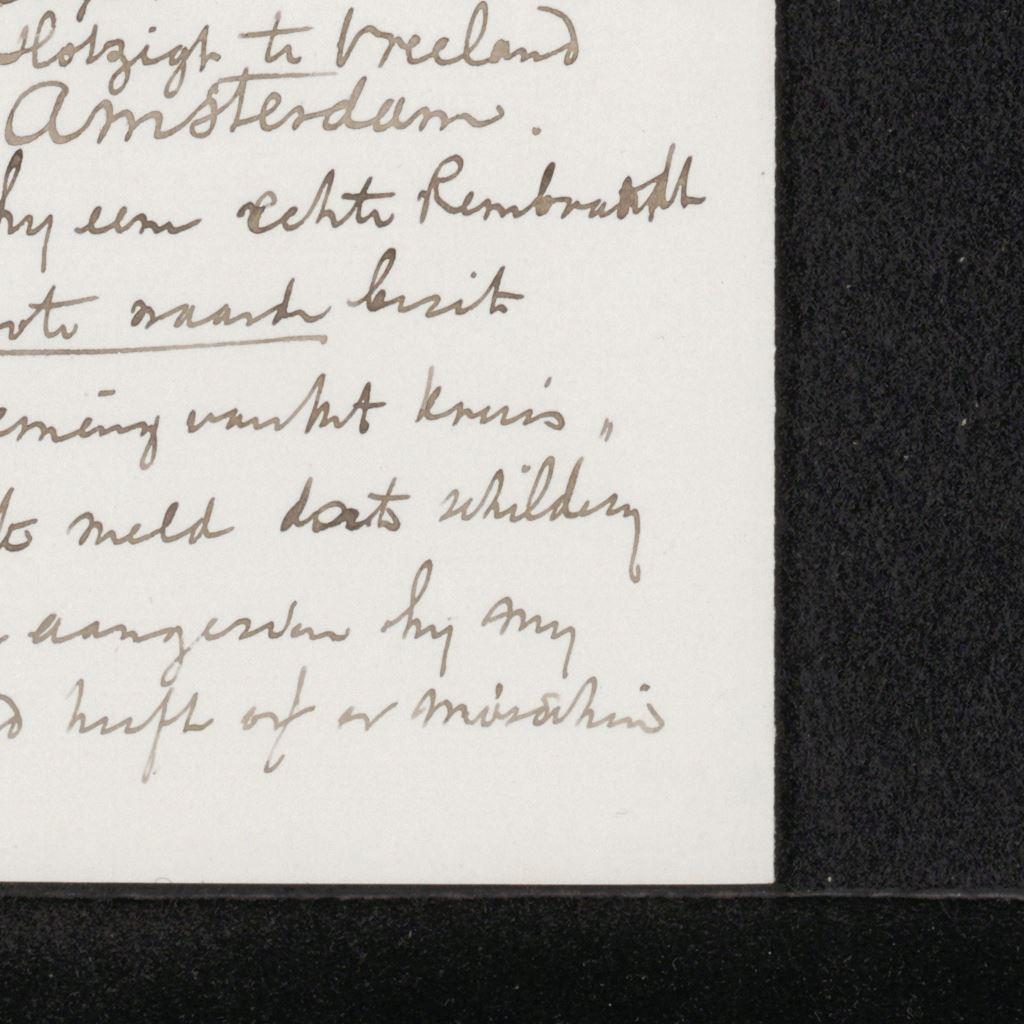 Slotzigt te Vreeland
Amsterdam.
hy een echte Rembrandt
ote waarde bezit
eming van het Kruis „
te meld dat schildery
aangezien hy my
d heeft of er misschien